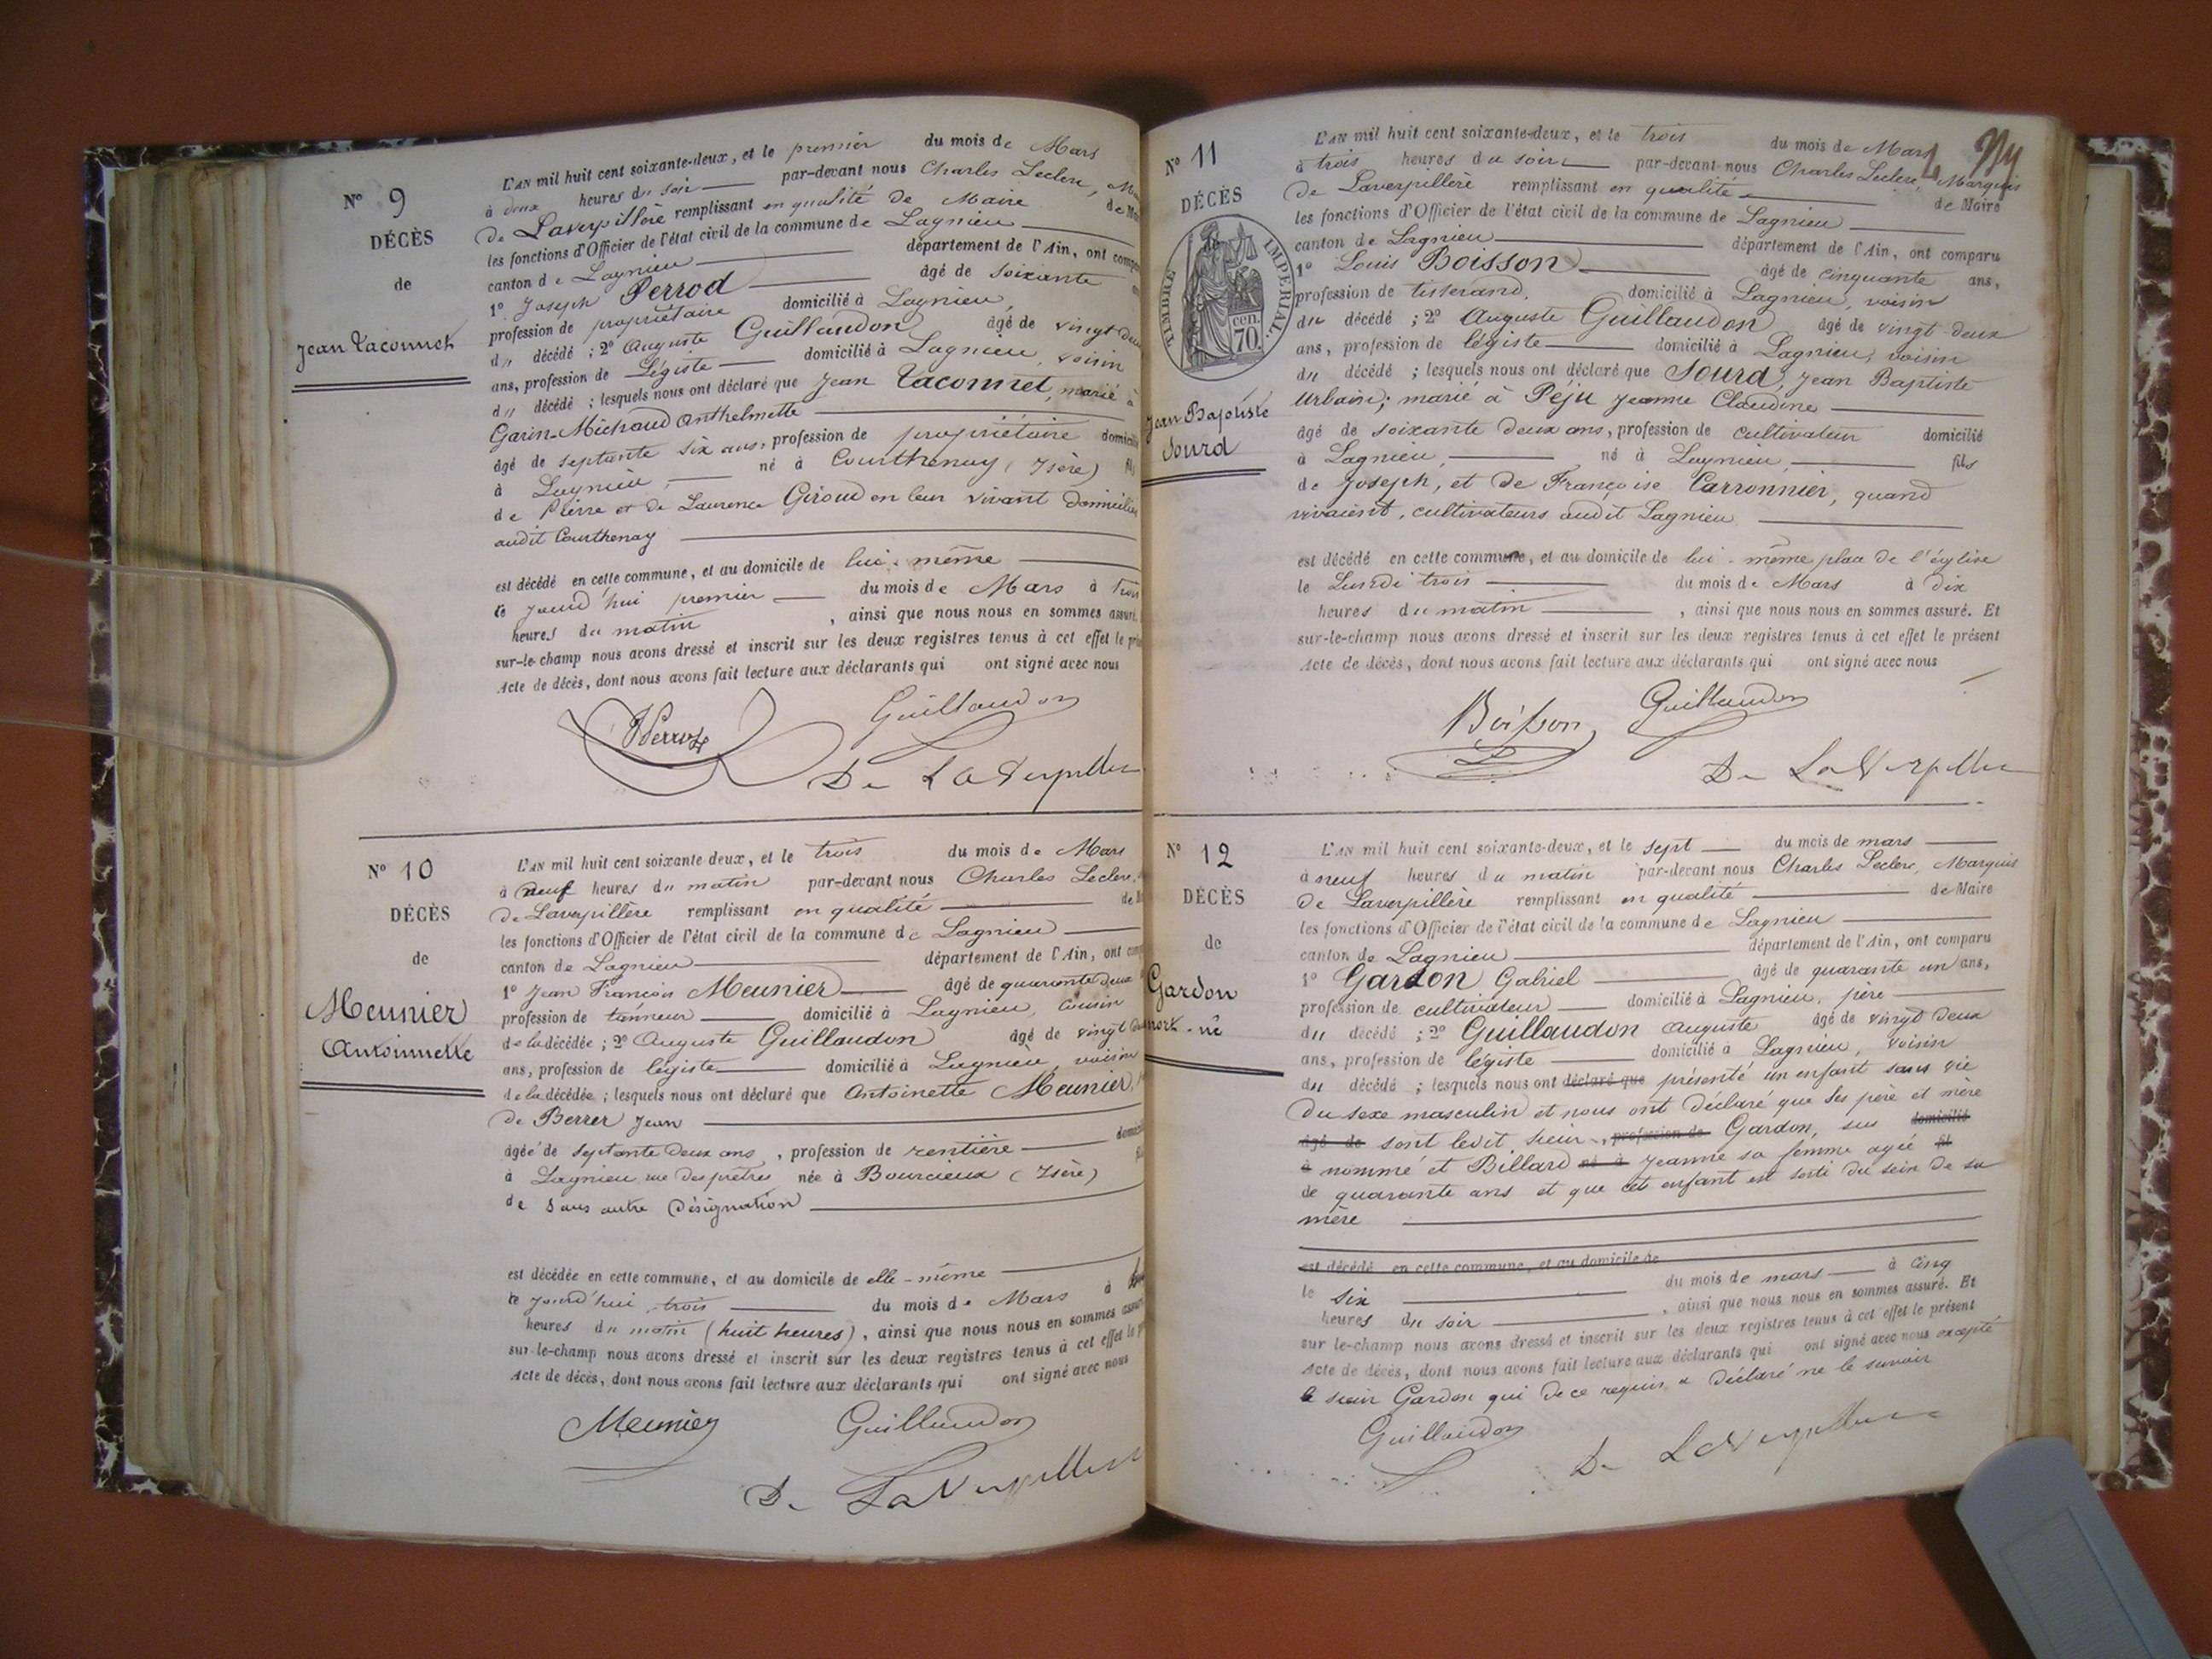 N° 9
DÉCÈS
de
Jean Taconnet
L'AN mil huit cent soixante-deux, et le premier du mois de Mars
à deux heures du soir par-devant nous Charles Leclerc,
de Laverpillère remplissant en qualité de Maire
les fonctions d'Officier de l'état civil de la commune de Lagnieu
canton de Lagnieu département de l'Ain, ont
1° Joseph Perrod âgé de soixante
profession de propriétaire domicilié à Lagnieu,
du décédé ; 2° Auguste Guillaudon âgé de vingt deux
ans, profession de Légiste domicilié à Lagnieu, voisin
du décédé ; lesquels nous ont déclaré que Jean Taconnet, marié à
Garin-Michaud Anthelmette
âgé de septante six ans, profession de propriétaire
à Lagnieu, né à Courthenay (Isère)
de Pierre et de Laurence Giroud en leur vivant domiciliés
audit Courthenay
est décédé en cette commune, et au domicile de lui-même
ce jourd'hui premier du mois de Mars à trois
heures du matin, ainsi que nous nous en sommes assuré.
sur-le-champ nous avons dressé et inscrit sur les deux registres tenus à cet effet le
Acte de décès, dont nous avons fait lecture aux déclarants qui ont signé avec nous
Perrod Guillaudon
De LaVerpillière
N° 10
DÉCÈS
de
Meunier
Antoinnette
L'AN mil huit cent soixante deux, et le trois du mois de Mars
à neuf heures du matin par-devant nous Charles Leclerc,
de Laverpillère remplissant en qualité
les fonctions d'Officier de l'état civil de la commune de Lagnieu
canton de Lagnieu département de l'Ain, ont
1° Jean François Meunier âgé de quarante deux
profession de tanneur domicilié à Lagnieu, cousin
de la décédée ; 2° Auguste Guillaudon âgé de vingt
ans, profession de légiste domicilié à Lagnieu, voisin
de la décédée ; lesquels nous ont déclaré que Antoinette Meunier,
de Berrer Jean
âgée de septante deux ans, profession de rentière
à Lagnieu, rue des prêtres née à Bourcieux (Isère)
de sans autre Désignation
est décédée en cette commune, et au domicile de elle-même
ce jourd'hui trois du mois de Mars à
heures du matin (huit heures), ainsi que nous nous en sommes
sur-le-champ nous avons dressé et inscrit sur les deux registres tenus à cet effet le
Acte de décès, dont nous avons fait lecture aux déclarants qui ont signé avec nous
Meunier Guillaudon
De LaVerpillière
N° 11
DÉCÈS
de
TIMBRE IMPÉRIAL.
70 cen.
Jean Baptiste
Sourd
L'AN mil huit cent soixante-deux, et le trois du mois de Mars
à trois heures du soir par-devant nous Charles Leclerc, Marquis
de Laverpillère remplissant en qualité de Maire
les fonctions d'Officier de l'état civil de la commune de Lagnieu
canton de Lagnieu département de l'Ain, ont comparu
1° Louis Boisson âgé de cinquante ans,
profession de tisserand, domicilié à Lagnieu, voisin
du décédé ; 2° Auguste Guillaudon âgé de vingt deux
ans, profession de légiste domicilié à Lagnieu, voisin
du décédé ; lesquels nous ont déclaré que Sourd, Jean Baptiste
Urbain, marié à Péju Jeanne Claudine
âgé de soixante deux ans, profession de cultivateur domicilié
à Lagnieu, né à Lagnieu, fils
de Joseph, et de Françoise Carronnier, quand
vivaient, cultivateurs audit Lagnieu
est décédé en cette commune, et au domicile de lui-même place de l'église
le Lundi trois du mois de Mars à dix
heures du matin, ainsi que nous nous en sommes assuré. Et
sur-le-champ nous avons dressé et inscrit sur les deux registres tenus à cet effet le présent
Acte de décès, dont nous avons fait lecture aux déclarants qui ont signé avec nous
Boisson Guillaudon
De LaVerpillière
N° 12
DÉCÈS
de
Gardon
mort-né
L'AN mil huit cent soixante-deux, et le sept du mois de mars
à neuf heures du matin par-devant nous Charles Leclerc, Marquis
de Laverpillère remplissant en qualité de Maire
les fonctions d'Officier de l'état civil de la commune de Lagnieu
canton de Lagnieu département de l'Ain, ont comparu
1° Gardon Gabriel âgé de quarante un ans,
profession de cultivateur domicilié à Lagnieu, père
du décédé ; 2° Guillaudon Auguste âgé de vingt deux
ans, profession de légiste domicilié à Lagnieu, voisin
du décédé ; lesquels nous ont déclaré que présenté un enfant sans vie
du sexe masculin et nous ont Déclaré que ses père et mère
âgé de sont ledit sieur, profession de Gardon, sus domicilié
à nommé et Billard né à Jeanne sa femme agée fil
de quarante ans et que cet enfant est sorti du sein de sa
mère
est décédé en cette commune, et au domicile de
le six du mois de mars à cinq
heures du soir, ainsi que nous nous en sommes assuré. Et
sur le-champ nous avons dressé et inscrit sur les deux registres tenus à cet effet le présent
Acte de décès, dont nous avons fait lecture aux déclarants qui ont signé avec nous excepté
le sieur Gardon qui de ce requis a déclaré ne le savoir
Guillaudon De LaVerpillière